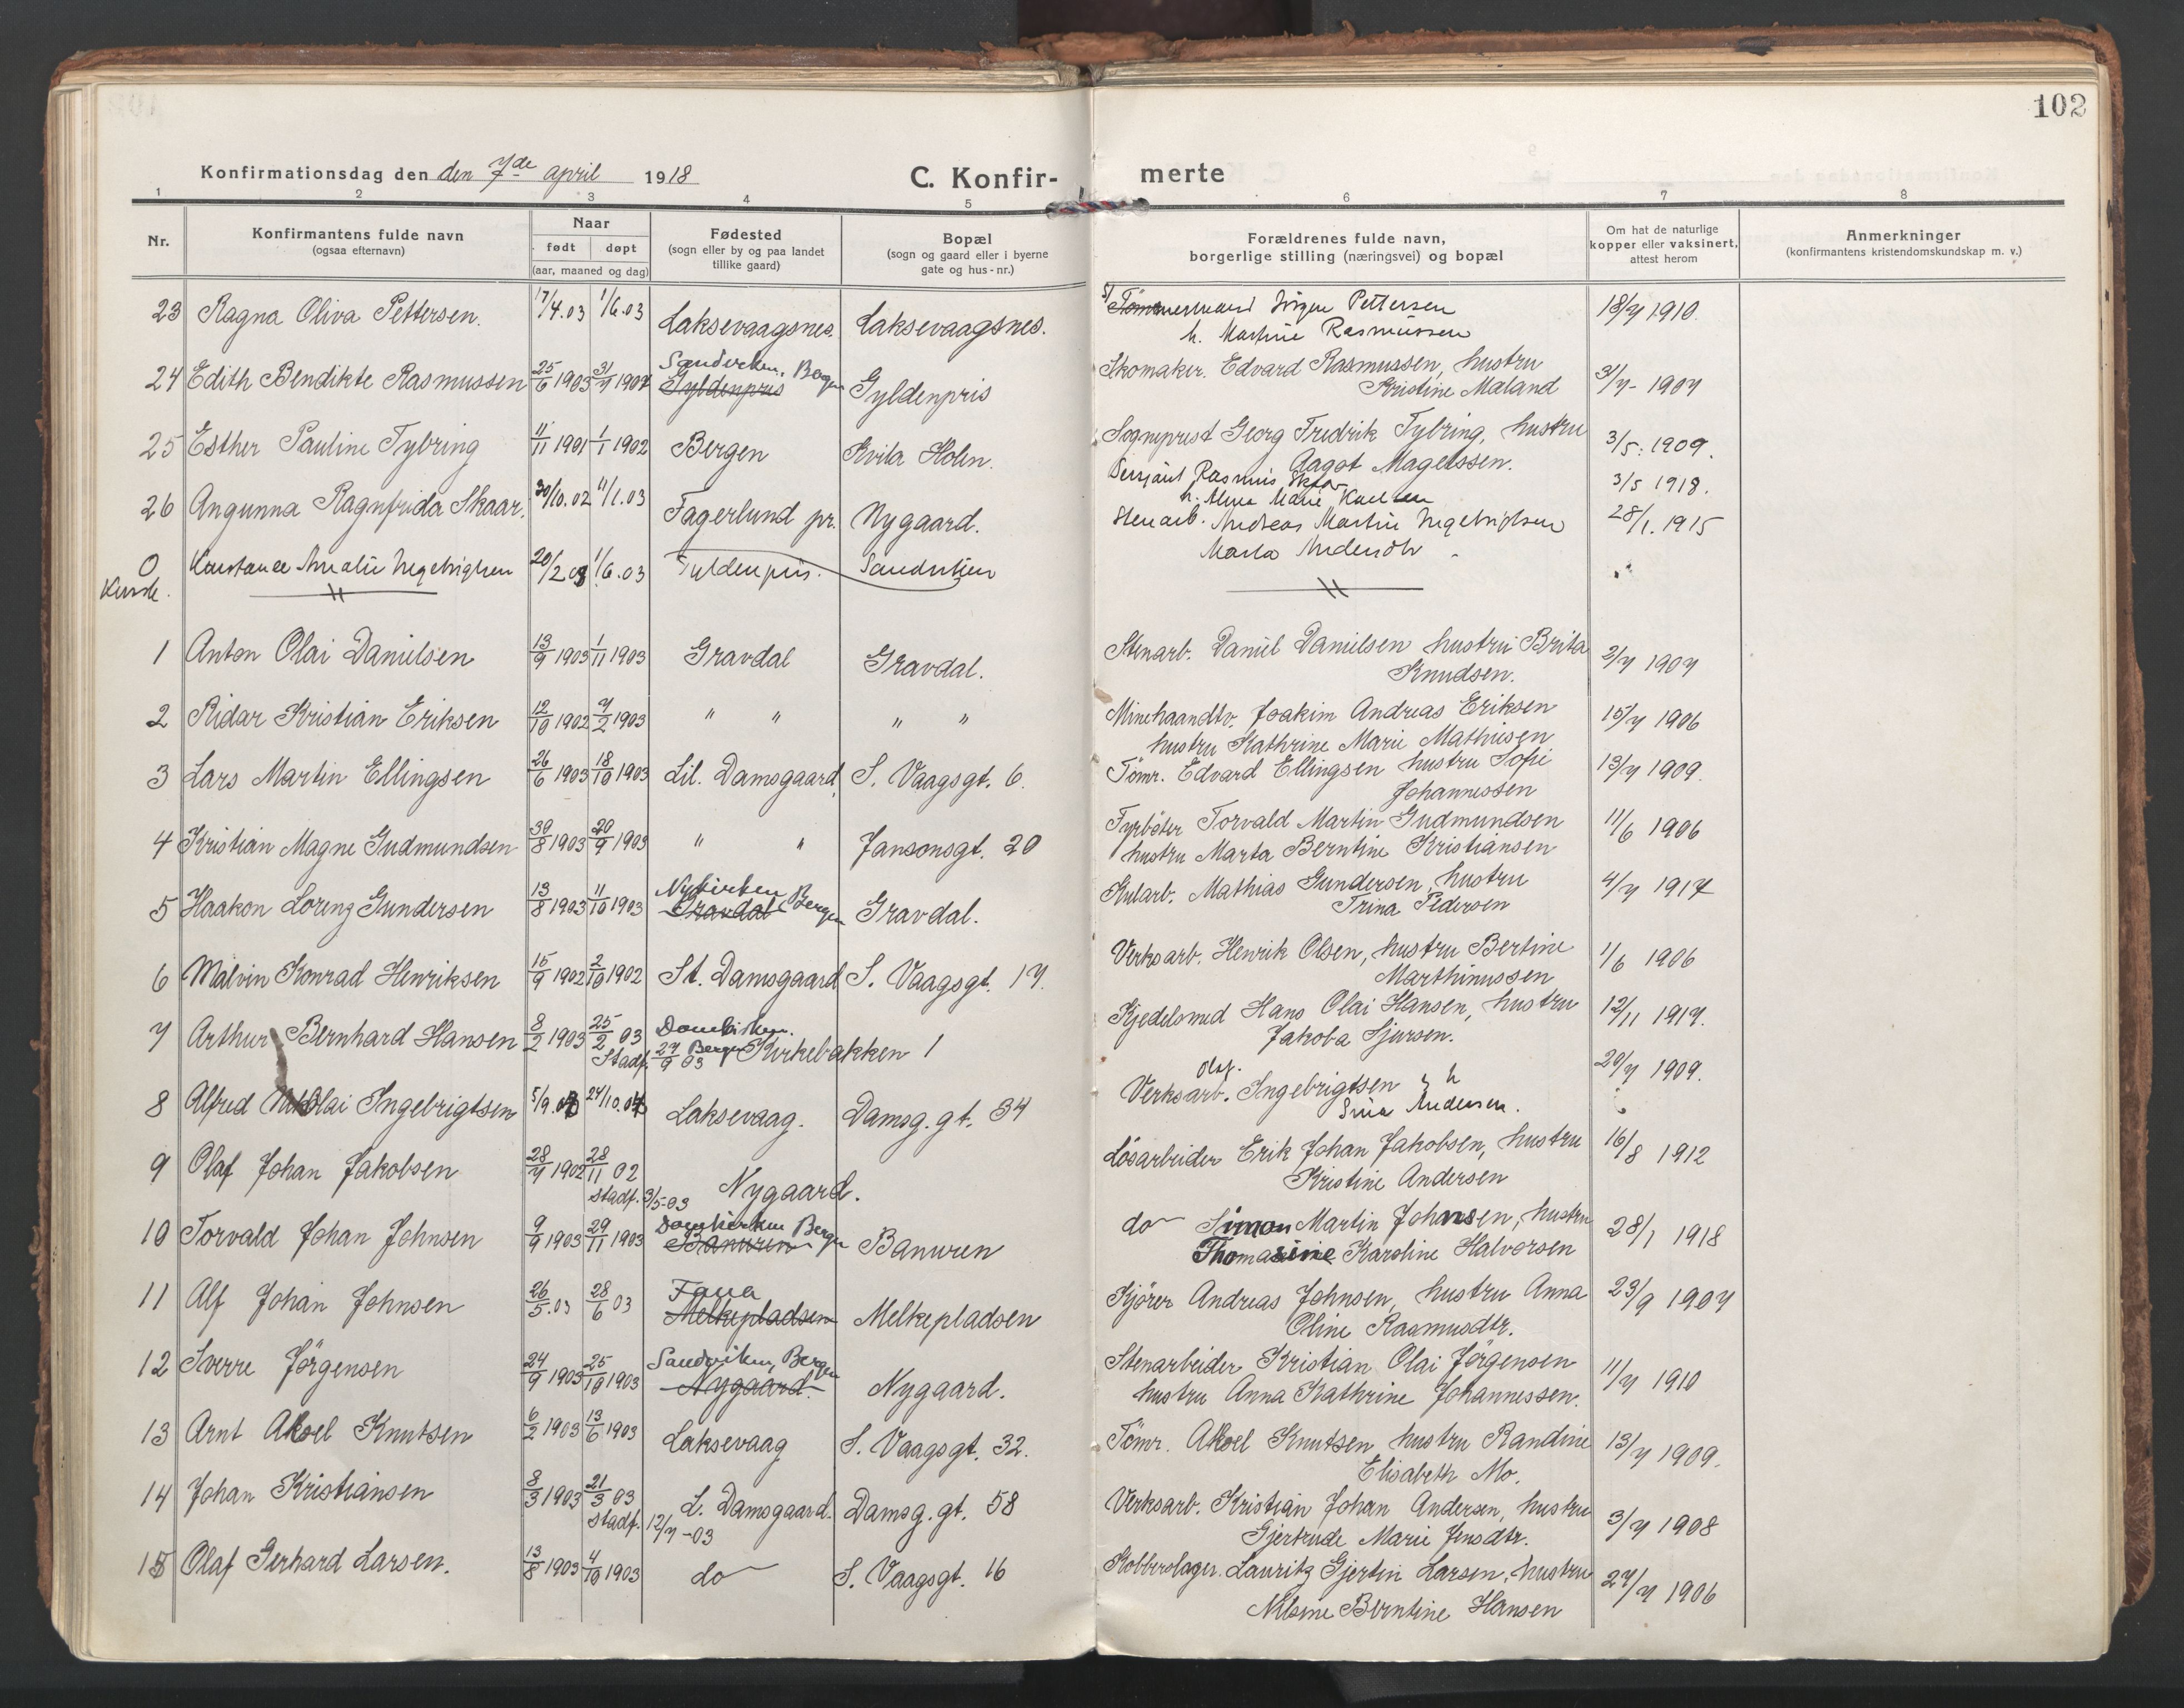 102
Konfirmationsdag den den 7de april 1918
C. Konfir- merte
1 2 3 4 5 6 7 8
Nr.
Konfirmantens fulde navn
(ogsaa efternavn)
Naar
født døpt
(aar, maaned og dag)
Fødested
(sogn eller by og paa landet
tillike gaard)
Bopæl
(sogn og gaard eller i byerne
gate og hus-nr.)
Forældrenes fulde navn,
borgerlige stilling (næringsvei) og bopæl
Om hat de naturlige
kopper eller vaksinert,
attest herom
Anmerkninger
(konfirmantens kristendomskundskap m. v.)
23 Ragna Oliva Pettersen. 17/4.03 1/6.03 Laksevaagsnes. Laksevaagsnes. Tömmermand Jörgen Pettersen 18/7 1910.
h. Martine Rasmussen
24 Edith Bendikte Rasmussen 25/6 1903 31/7 1904 Sandviken, Bergen Gyldenpris Gyldenpris Skomaker. Edvard Rasmussen, hustru 3/7- 1907
Kristine Maland
25 Esther Pauline Tybring 11/11 1901 1/1 1902 Bergen Kvita Holen. Sogneprest Georg Fredrik Tybring, hustru 3/5. 1909.
Aagot Magelssen.
26 Angunna Ragnfrida Skaar. 30/10.02 11/1.03 Fagerlund pr. Nygaard. Sersjant Rasmus Skaar 3/5 1918.
h. Alma Marie
0 Konstance Amalie Ingebrigtsen 20/2 03 1/6.03 Gyldenpris. Sandvikens Stenarb. Andreas Martin Ingebrigtsen 28/1. 1915
Marta Andersdtr
1 Anton Olai Danielsen 13/9 1903 1/11 1903 Gravdal Gravdal. Stenarb. Daniel Danielsen hustru Brita 2/7 1907
Knudsen.
2 Ridar Kristian Eriksen 12/10 1902 7/2 1903 " " " " Minehaandtv. Joakim Andreas Eriksen 15/7 1906
hustru Kathrine Marie Mathiesen
3 Lars Martin Ellingsen 26/6 1903 18/10 1903 Lil. Damsgaard. S. Vaagsgt. 6. Tömr. Edvard Ellingsen hustru Sofie 13/7 1909.
Johannessen
4 Kristian Magne Gudmundsen 30/8 1903 20/9 1903 " " Jansonsgt. 20 Fyrböter Torvald Martin Gudmundsen 11/6 1906
hustru Marta Berntine Kristiansen
5 Haakon Lorenz Gundersen 13/8 1903 11/10 1903 Nykirken Bergen Gravdal Gravdal. Kularb. Mathias Gundersen, hustru 4/7 1917
Trina Pedersen
6 Malvin Konrad Henriksen 15/9 1902 2/10 1902 St. Damsgaard S. Vaagsgt. 17. Verksarb. Henrik Olsen, hustru Bertine 1/6 1906
Marthinussen
7 Arthur Bernhard Hansen 8/2 1903 25/2 03 Domkirken. Kirkebakken 1 Kjedelsmed Hans Olai Hansen, hustru 12/11 1917.
Stadf. 27/9 03 Bergen Jakoba Sjursen.
8 Alfred Nikolai Ingebrigtsen 5/9.03 24/10.03 Laksevaag. Damsg. gt. 34 Verksarb. Olaf. Ingebrigtsen, h 20/7 1909.
Sina Andersen.
9 Olaf Johan Jakobsen 28/7 1902 28/11 02 Nygaard. Lösarbeider Erik Johan Jakobsen, hustru 16/8 1912
stadf. 3/5-03 Kristine Andersen
10 Torvald Johan Johnsen 9/9 1903 29/11 1903 Domkirken Bergen Banuren Banuren do Simon Martin Johnsen, hustru 28/1 1918
Thomasine Karoline Halvorsen
11 Alf Johan Johnsen 26/5.03 28/6 03 Fana Melkepladsen Melkepladsen Kjörer Andreas Johnsen, hustru Anna 23/9 1907
Oline Rasmusdtr.
12 Sverre Jörgensen 24/9 1903 25/10 1903 Sandviken, Bergen Nygaard. Nygaard. Stenarbeider Kristian Olai Jörgensen 11/7 1910
hustru Anna Kathrine Johannessen.
13 Arnt Aksel Knutsen 6/2 1903 13/6 1903 Laksevaag S. Vaagsgt. 32. Tömr. Aksel Knutsen hustru Randine 13/7 1909.
Elisabeth Mo.
14 Johan Kristiansen 8/3 1903 21/3 03 L. Damsgaard. Damsg. gt. 58 Verksarb. Kristian Johan Andersen, hustru 3/7 1908
stadf. 12/7-03 Gjertrude Marie Jensdtr.
15 Olaf Gerhard Larsen. 13/8 1903 4/10 1903 do S. Vaagsgt. 16 Kobberslager. Lauritz Gjertin Larsen, hustru 27/7 1906
Nilsine Berntine Hansen